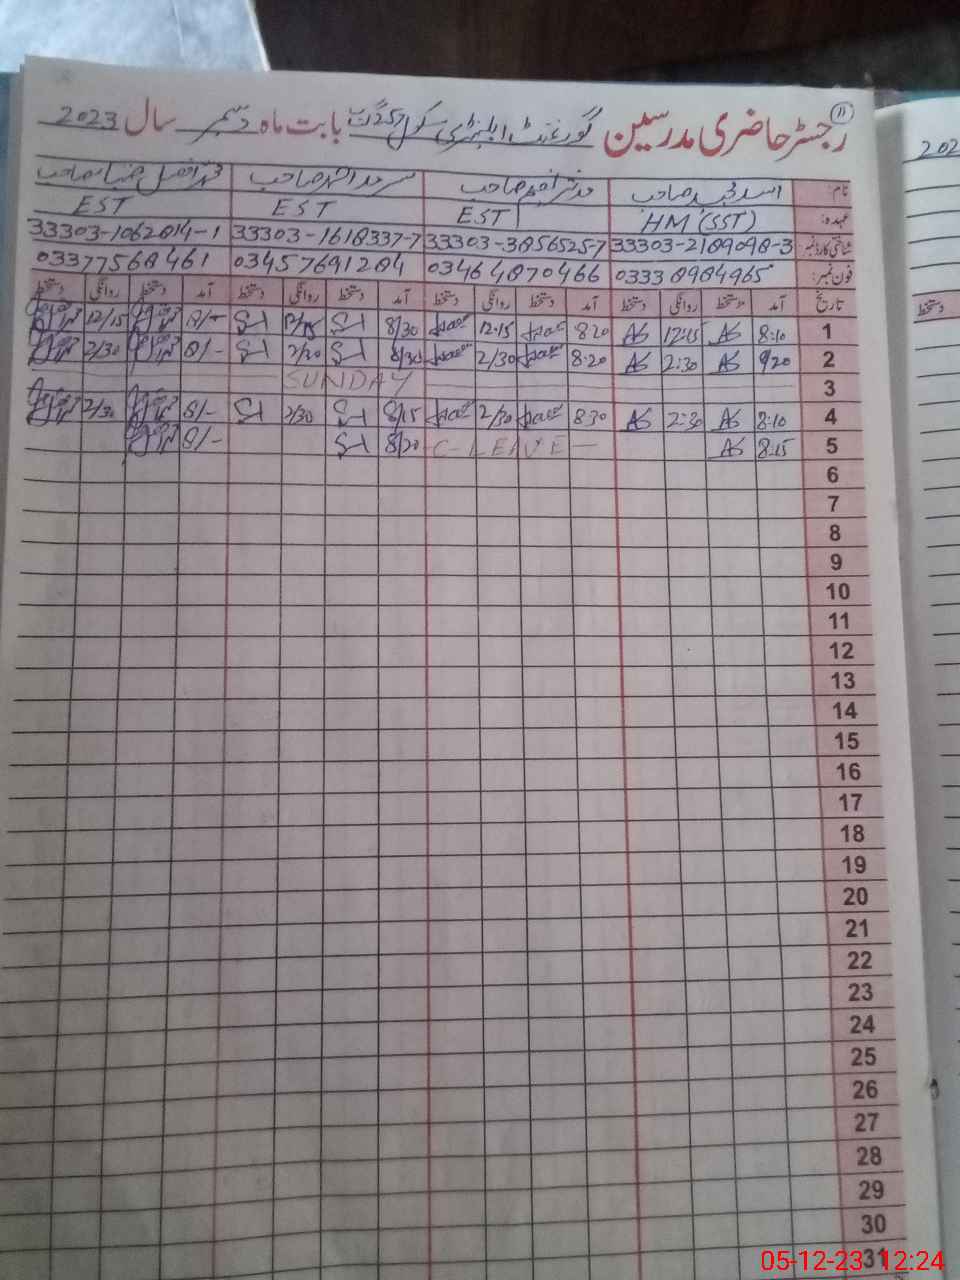 رجسٹر حاضری مدرسین گورنمنٹ ایلیمنٹری سکول 257 گ ب بابت ماہ دسمبر سال 2023
11
202
نام: اسد مجید صاحب مدثر صاحب سرمد صاحب محمد افضل ضیاء صاحب
عہدہ: HM (SST) EST EST EST
شناختی کارڈ نمبر: 33303-2189098-3 33303-3856525-7 33303-1618337-7 33303-1062814-1
فون نمبر: 03338984965 03464870466 03457691284 03377568461
تاریخ آمد دستخط روانگی دستخط آمد دستخط روانگی دستخط آمد دستخط روانگی دستخط آمد دستخط روانگی دستخط
دستخط
1 8:10 AS 12:15 AS 8:20 12:15 8/30 12/15 8/- 12/15
2 8/20 AS 2:30 AS 8:20 2/30 8/30 2/30 8/- 2/30
3 SUNDAY
4 8:10 AS 2:30 AS 8:30 2/30 8/15 2/30 8/- 2/30
5 8:15 AS C-LEAVE 8/20 8/-
6
7
8
9
10
11
12
13
14
15
16
17
18
19
20
21
22
23
24
25
26
27
28
29
30
31
05-12-23 12:24